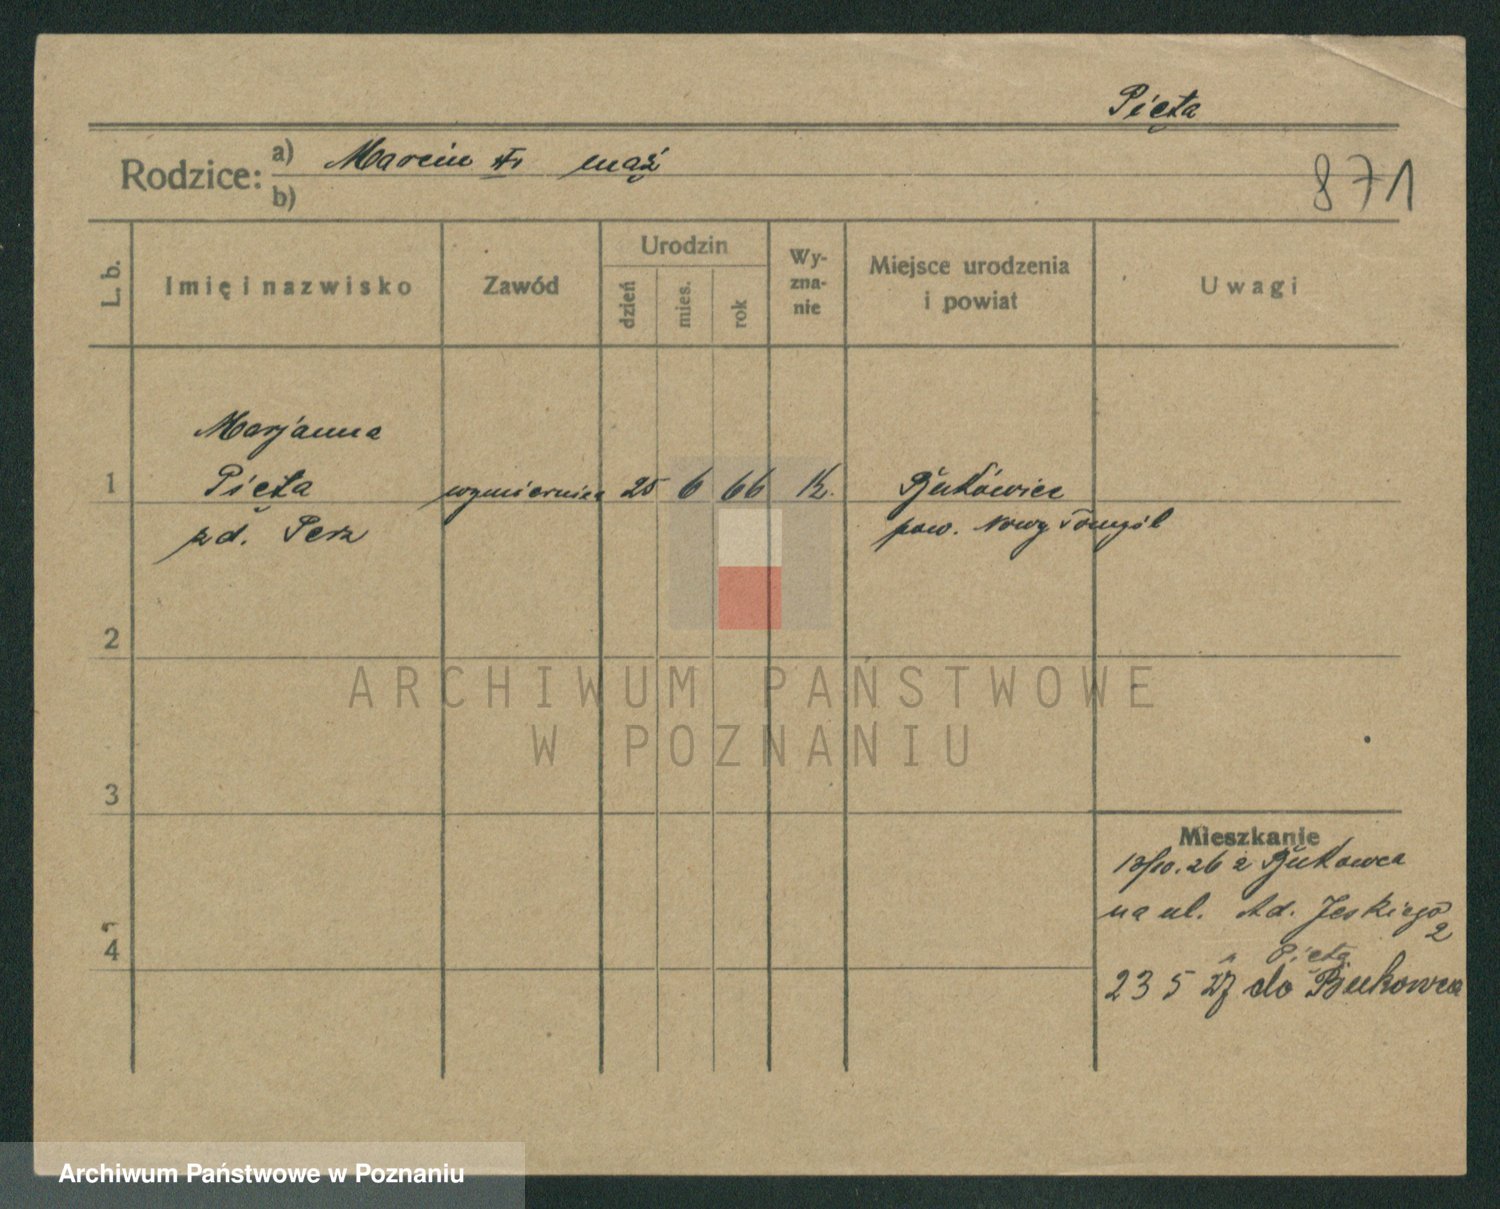 Pięta
Rodzice: a) Marcin mąż
b)
871
L. b.
Imię i nazwisko
Zawód
Urodzin
dzień
mies.
rok
Wy-
zna-
nie
Miejsce urodzenia
i powiat
Uwagi
Marjanna
1 Pięta wymiernica 25 6 66 K. Bukowiec
zd. Perz pow. Nowy Tomyśl
2
ARCHIWUM PAŃSTWOWE
W POZNANIU
3
Mieszkanie
13/10.26 z Bukowca
na ul. Ad. Jeskiego
2
u Pięta
4
23 5 27 do Bukowca
Archiwum Państwowe w Poznaniu